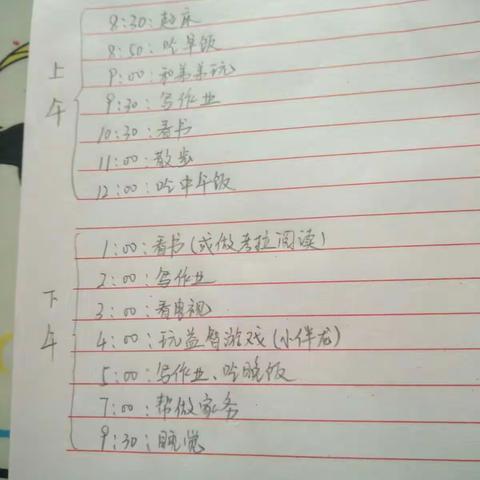 上午
8:30:起床
8:50:吃早饭
9:00:和弟弟玩
9:30:写作业
10:30:看书
11:00:散步
12:00:吃中午饭
下午
1:00:看书(或做考拉阅读)
2:00:写作业
3:00:看电视
4:00:玩益智游戏(小伴龙)
5:00:写作业、吃晚饭
7:00:帮做家务
9:30:睡觉